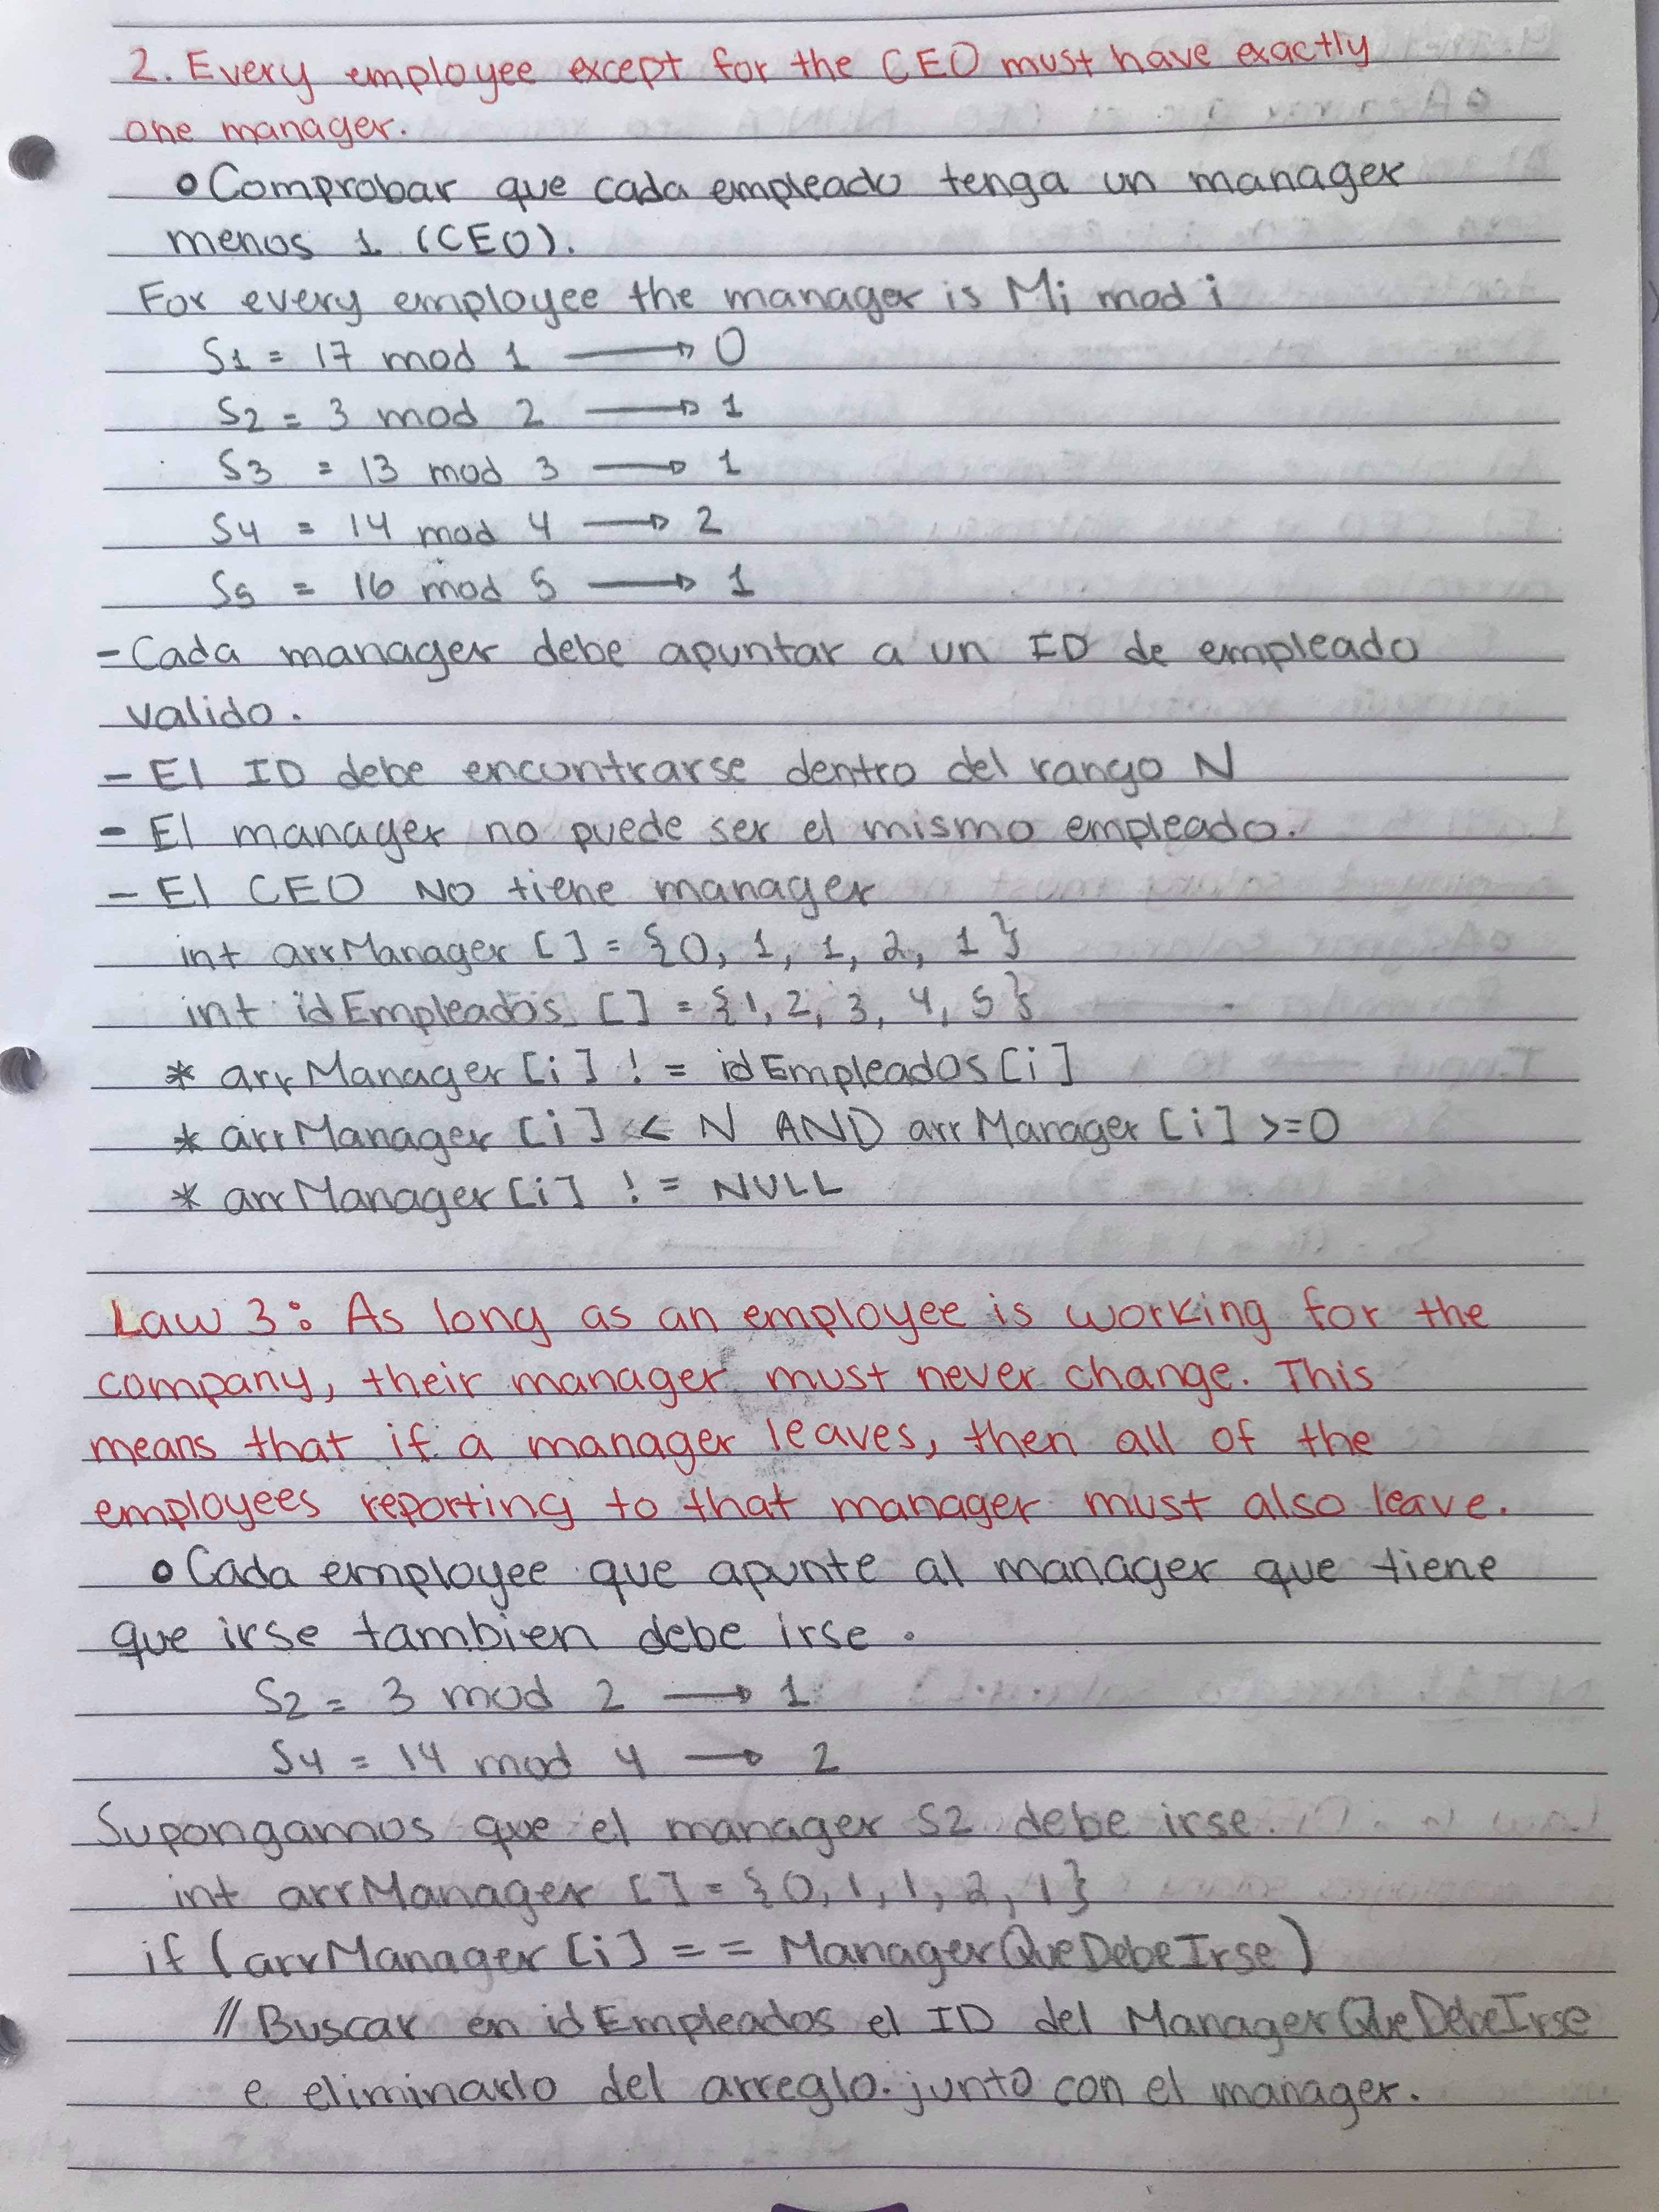 2. Every employee except for the CEO must have exactly
one manager.
o Comprobar que cada empleado tenga un manager
menos 1 (CEO).
For every employee the manager is Mi mod i
S1 = 17 mod 1 → 0
S2 = 3 mod 2 → 1
S3 = 13 mod 3 → 1
S4 = 14 mod 4 → 2
S5 = 16 mod 5 → 1
- Cada manager debe apuntar a un ID de empleado
valido.
- El ID debe encontrarse dentro del rango N
- El manager no puede ser el mismo empleado.
- El CEO NO tiene manager
int arrManager [] = {0, 1, 1, 2, 1}
int idEmpleados [] = {1, 2, 3, 4, 5}
* arrManager [i] != idEmpleados [i]
* arrManager [i] < N AND arrManager [i] >=0
* arrManager [i] != NULL
Law 3: As long as an employee is working for the
company, their manager must never change. This
means that if a manager leaves, then all of the
employees reporting to that manager must also leave.
o Cada employee que apunte al manager que tiene
que irse tambien debe irse.
S2 = 3 mod 2 → 1
S4 = 14 mod 4 → 2
Supongamos que el manager S2 debe irse.
int arrManager [] = {0, 1, 1, 2, 1}
if (arrManager [i] == ManagerQueDebeIrse)
// Buscar en idEmpleados el ID del ManagerQueDebeIrse
e eliminarlo del arreglo. junto con el manager.